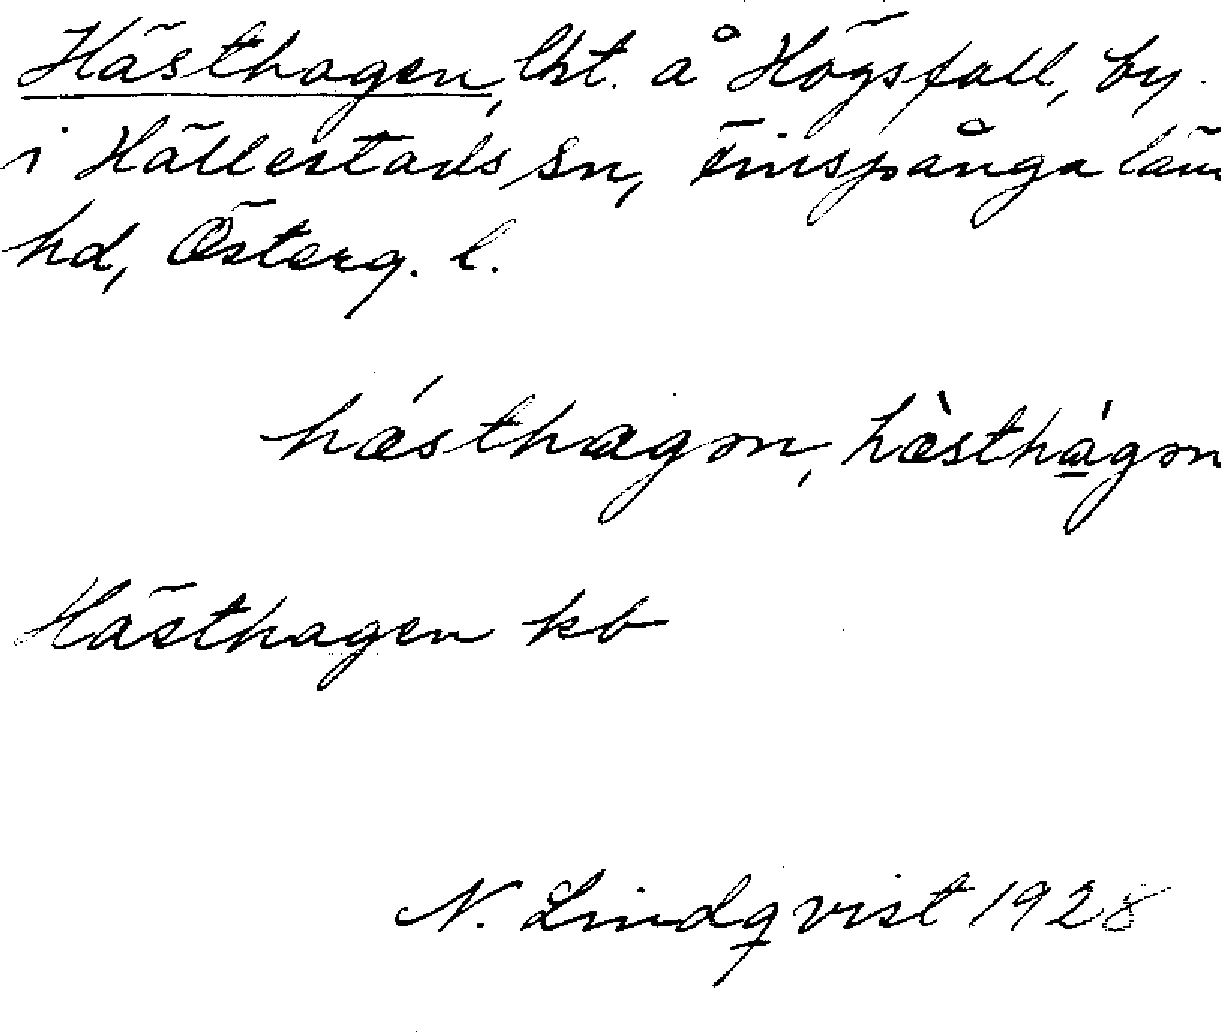 Hästhagen, lht. å Högsfall, by
i Hällestads sn, Finspånga län
hd, Österg. l.
hǽsthagən, hæ̀sthágən
Hästhagen kb
N. Lindqvist 1928